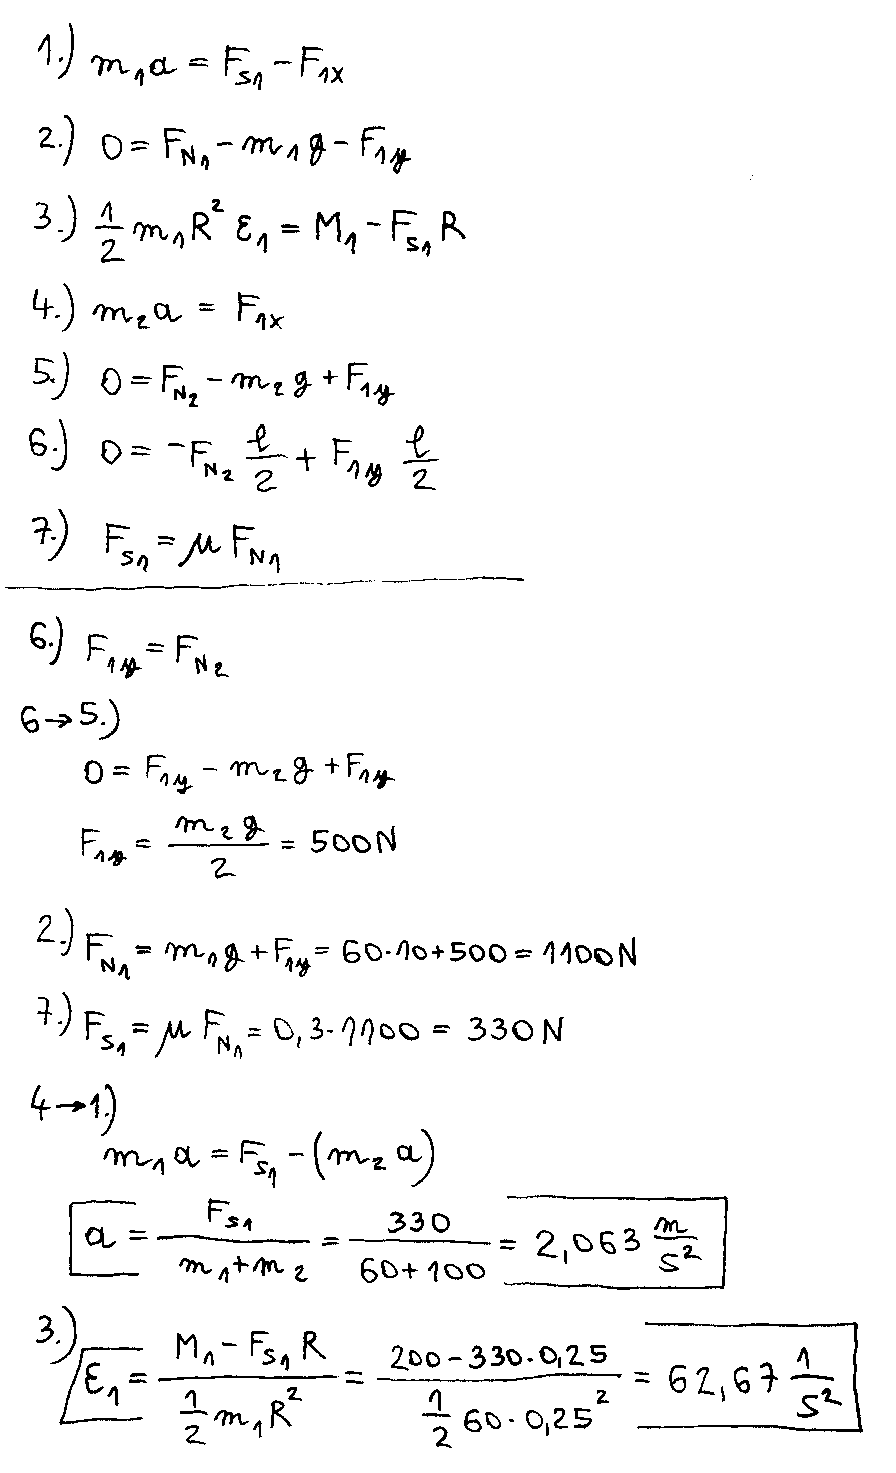 1.) m₁a = F_S1 - F_1x
2.) 0 = F_N1 - m₁g - F_1y
3.) 1/2 m₁R² ε₁ = M₁ - F_S1 R
4.) m₂a = F_1x
5.) 0 = F_N2 - m₂g + F_1y
6.) 0 = -F_N2 l/2 + F_1y l/2
7.) F_S1 = μ F_N1
6.) F_1y = F_N2
6→5.)
0 = F_1y - m₂g + F_1y
F_1y = m₂g/2 = 500N
2.) F_N1 = m₁g + F_1y = 60·10+500 = 1100N
7.) F_S1 = μ F_N1 = 0,3·1100 = 330N
4→1.)
m₁a = F_S1 - (m₂a)
a = F_S1/(m₁+m₂) = 330/(60+100) = 2,063 m/s²
3.) ε₁ = (M₁ - F_S1 R)/(1/2 m₁R²) = (200-330·0,25)/(1/2 60·0,25²) = 62,67 1/s²